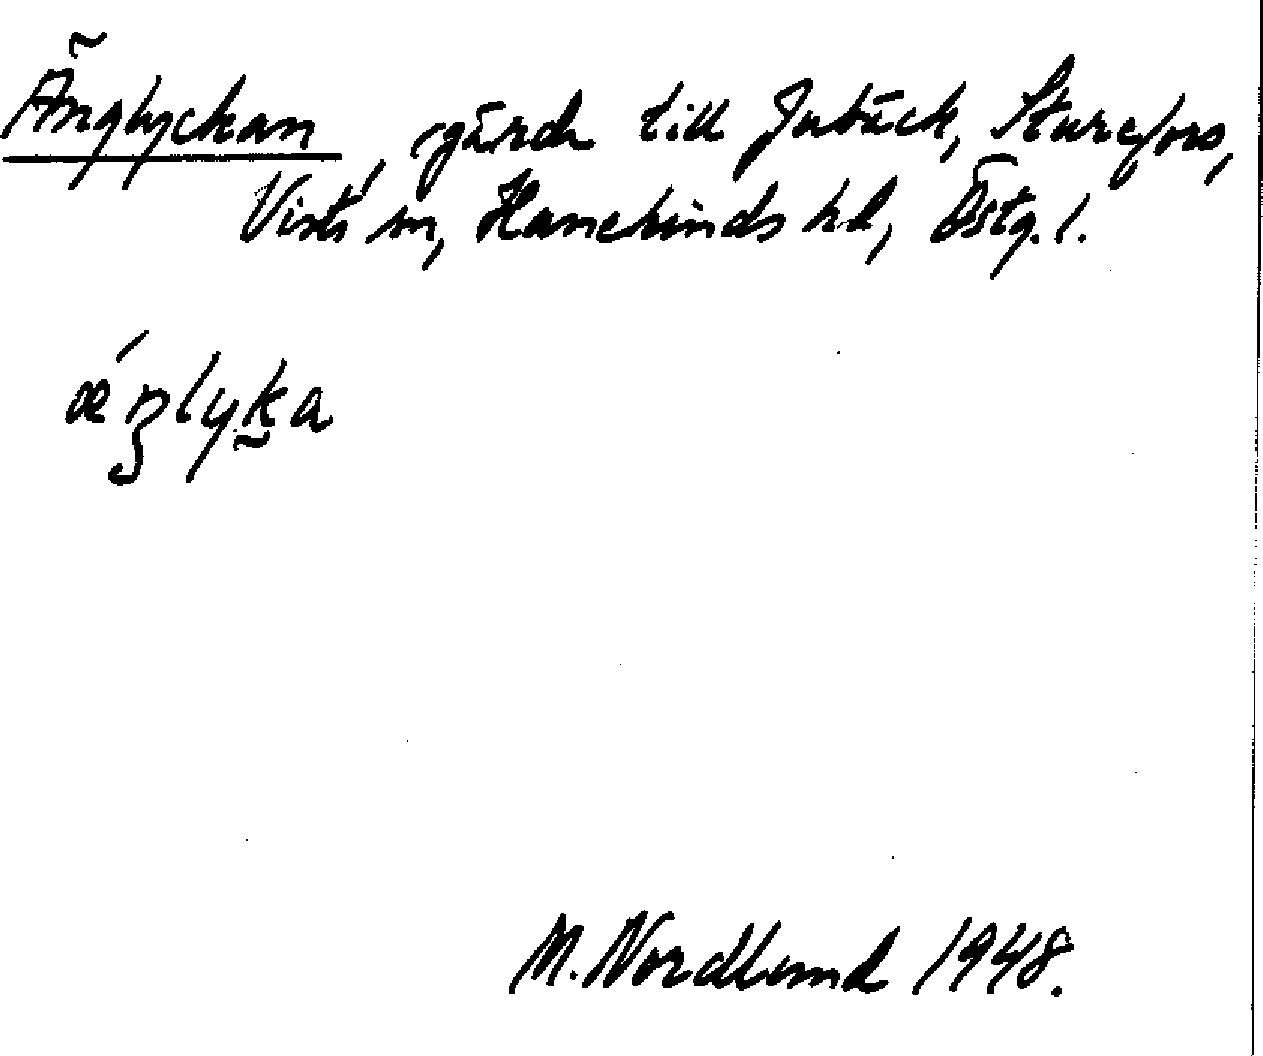 Änglyckan, gärde till Jubäck, Sturefors,
Vists sn, Hanekinds hd, Östg. l.
ǽŋlyk̮a
M. Nordlund 1948.